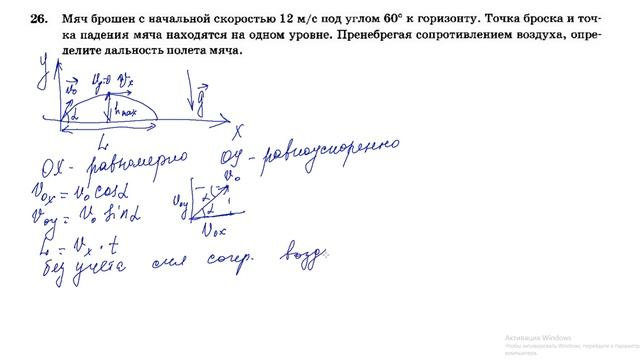 26. Мяч брошен с начальной скоростью 12 м/с под углом 60° к горизонту. Точка броска и точ-
ка падения мяча находятся на одном уровне. Пренебрегая сопротивлением воздуха, опре-
делите дальность полета мяча.
y v₀ vy=0 vx
α hmax g
L x
OX - равномерно OY - равноускоренно
v₀x = v₀ cosα v₀y v₀ α
v₀y = v₀ sinα v₀x
L = vx · t
без учёта сил сопр. возд
Активация Windows
Чтобы активировать Windows, перейдите в параметры
компьютера.